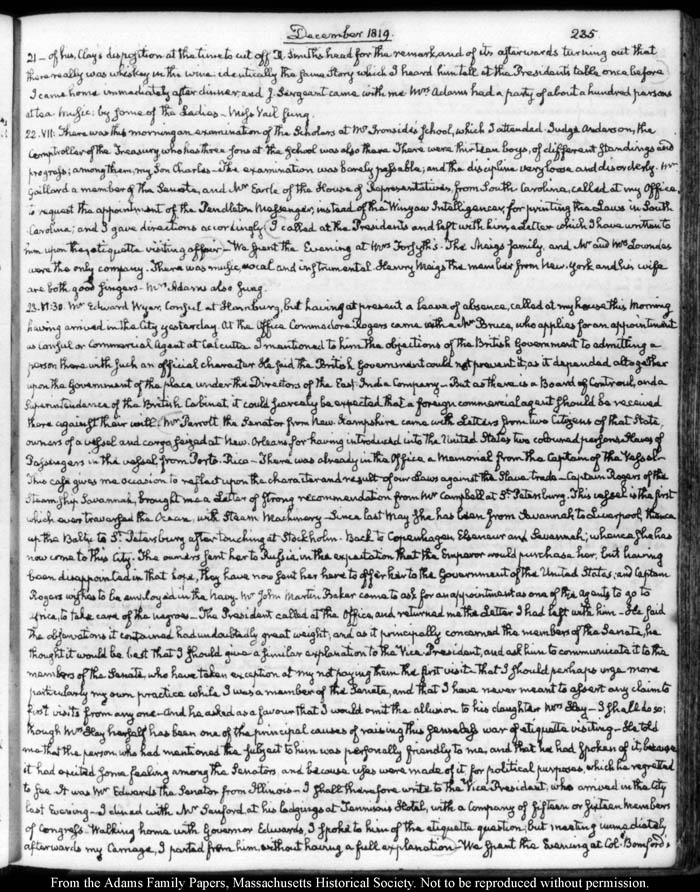 December 1819. 235
21 — of his, Clay's disposition at the time to cut off R. Smith's head for the remark, and of its afterwards turning out that
there really was whiskey in the wine: identically the same story which I heard him tell at the President's table once before
I came home immediately after dinner, and J. Sergeant came with me Mrs Adams had a party of about a hundred persons
at tea. Music: by some of the Ladies — Miss Vail sung.
22. VII: There was this morning an examination of the Scholars at Mr Ironside's School, which I attended. Judge Anderson, the
Comptroller of the Treasury who has three sons at the School was also there. There were thirteen boys, of different standings and
progress; among them, my Son Charles — The examination was barely passable; and the discipline very loose and disorderly. Mr
Gaillard a member of the Senate, and Mr Earle of the House of Representatives, from South Carolina, called at my Office,
to request the appointment of the Pendleton Messenger, instead of the Winyaw Intelligencer, for printing the Laws in South
Carolina; and I gave directions accordingly. I called at the President's and left with him a Letter which I have written to
him upon the etiquette visiting affair — We spent the Evening at Mrs Forsyth's. The Meigs family, and Mr and Mrs Lowndes
were the only company. There was music, vocal and instrumental. Henry Meigs the member from New-York and his wife
are both good singers. Mrs Adams also sung.
23. VI:30. Mr Edward Wyer, Consul at Hamburg, but having at present a leave of absence, called at my house this Morning
having arrived in the City yesterday. At the Office Commodore Rogers came with a Mr Bruce, who applies for an appointment
as Consul or Commercial Agent at Calcutta I mentioned to him the objections of the British Government to admitting a
person there with such an official character. He said the British Government could not prevent it, as it depended altogether
upon the Government of the place under the Directors of the East India Company — But as there is a Board of Controul, and a
Superintendence of the British Cabinet it could scarcely be expected that a foreign commercial agent should be received
there against their will. Mr Parrott the Senator from New Hampshire came with Letters from two Citizens of that State,
owners of a vessel and cargo seized at New Orleans, for having introduced into the United States two coloured persons Slaves of
Passengers in the vessel, from Porto-Rico — There was already in the Office, a Memorial from the Captain of the Vessel —
This case gives me occasion to reflect upon the character and result of our Laws against the Slave trade — Captain Rogers of the
Steam Ship Savannah, brought me a Letter of strong recommendation from Mr Campbell at St. Petersburg. This vessel is the first
which ever traversed the Ocean, with Steam Machinery — Since last May she has been from Savannah to Liverpool, thence
up the Baltic to St. Petersburg after touching at Stockholm — Back to Copenhagen Elseneur and Savannah; whence she has
now come to this City. The owners sent her to Russia, in the expectation that the Emperor would purchase her; but having
been disappointed in that hope, they have now sent her here to offer her to the Government of the United States; and Captain
Rogers wishes to be employed in the Navy. Mr John Martin Baker came to ask for an appointment as one of the agents to go to
Africa, to take care of the negroes — The President called at the Office, and returned me the Letter I had left with him — He said
the observations it contained had undoubtedly great weight, and as it principally concerned the members of the Senate, he
thought it would be best that I should give a similar explanation to the Vice-President, and ask him to communicate it to the
members of the Senate, who have taken exception at my not paying them the first visit — That I should perhaps urge more
particularly my own practice while I was a member of the Senate, and that I have never meant to assert any claim to
first visits from any one — And he asked as a favour that I would omit the allusion to his daughter Mrs Hay — I shall do so;
though Mrs Hay herself has been one of the principal causes of raising this senseless war of etiquette visiting — He told
me that the person who had mentioned the subject to him was personally friendly to me, and that he had spoken of it, because
it had excited some feeling among the Senators, and because uses were made of it for political purposes, which he regretted
to see. It was Mr Edwards the Senator from Illinois — I shall therefore write to the Vice President, who arrived in the City
last Evening — I dined with Mr Sanford at his lodgings at Tennison's Hotel, with a Company of fifteen or sixteen members
of Congress. Walking home with Governor Edwards, I spoke to him of the etiquette question, but meeting immediately
afterwards my Carriage, I parted from him, without having a full explanation — We spent the Evening at Col. Bomford's
From the Adams Family Papers, Massachusetts Historical Society. Not to be reproduced without permission.